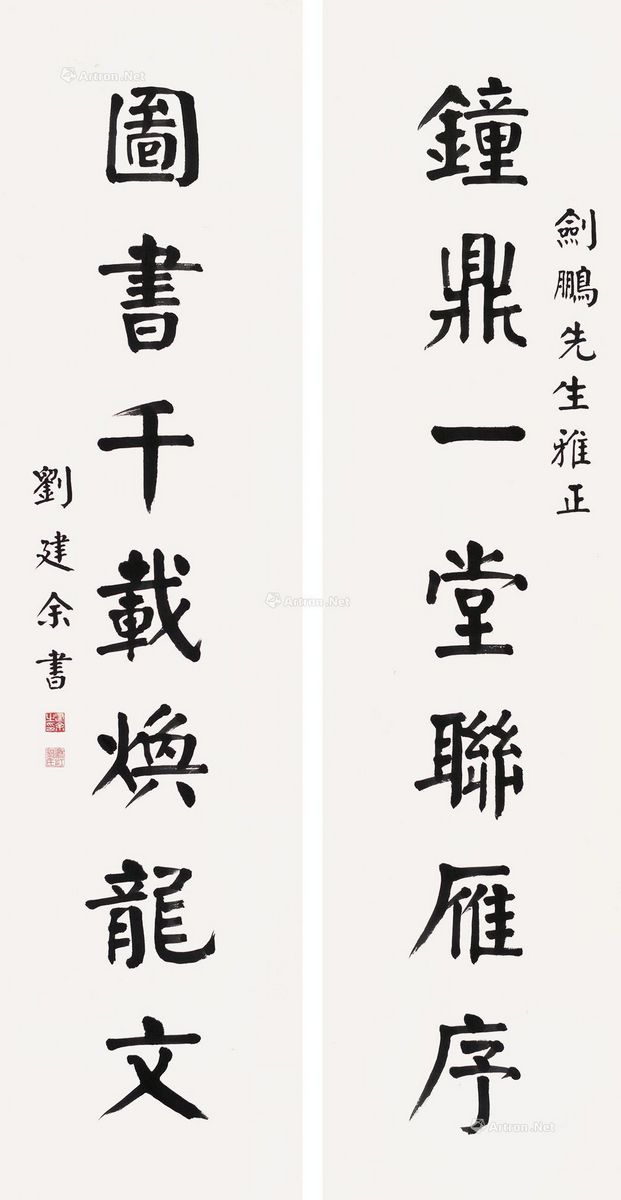 劍鵬先生雅正
鐘鼎一堂聯雁序
圖書千載煥龍文
劉建余書
Artron.Net
Artron.Net
Artron.Net